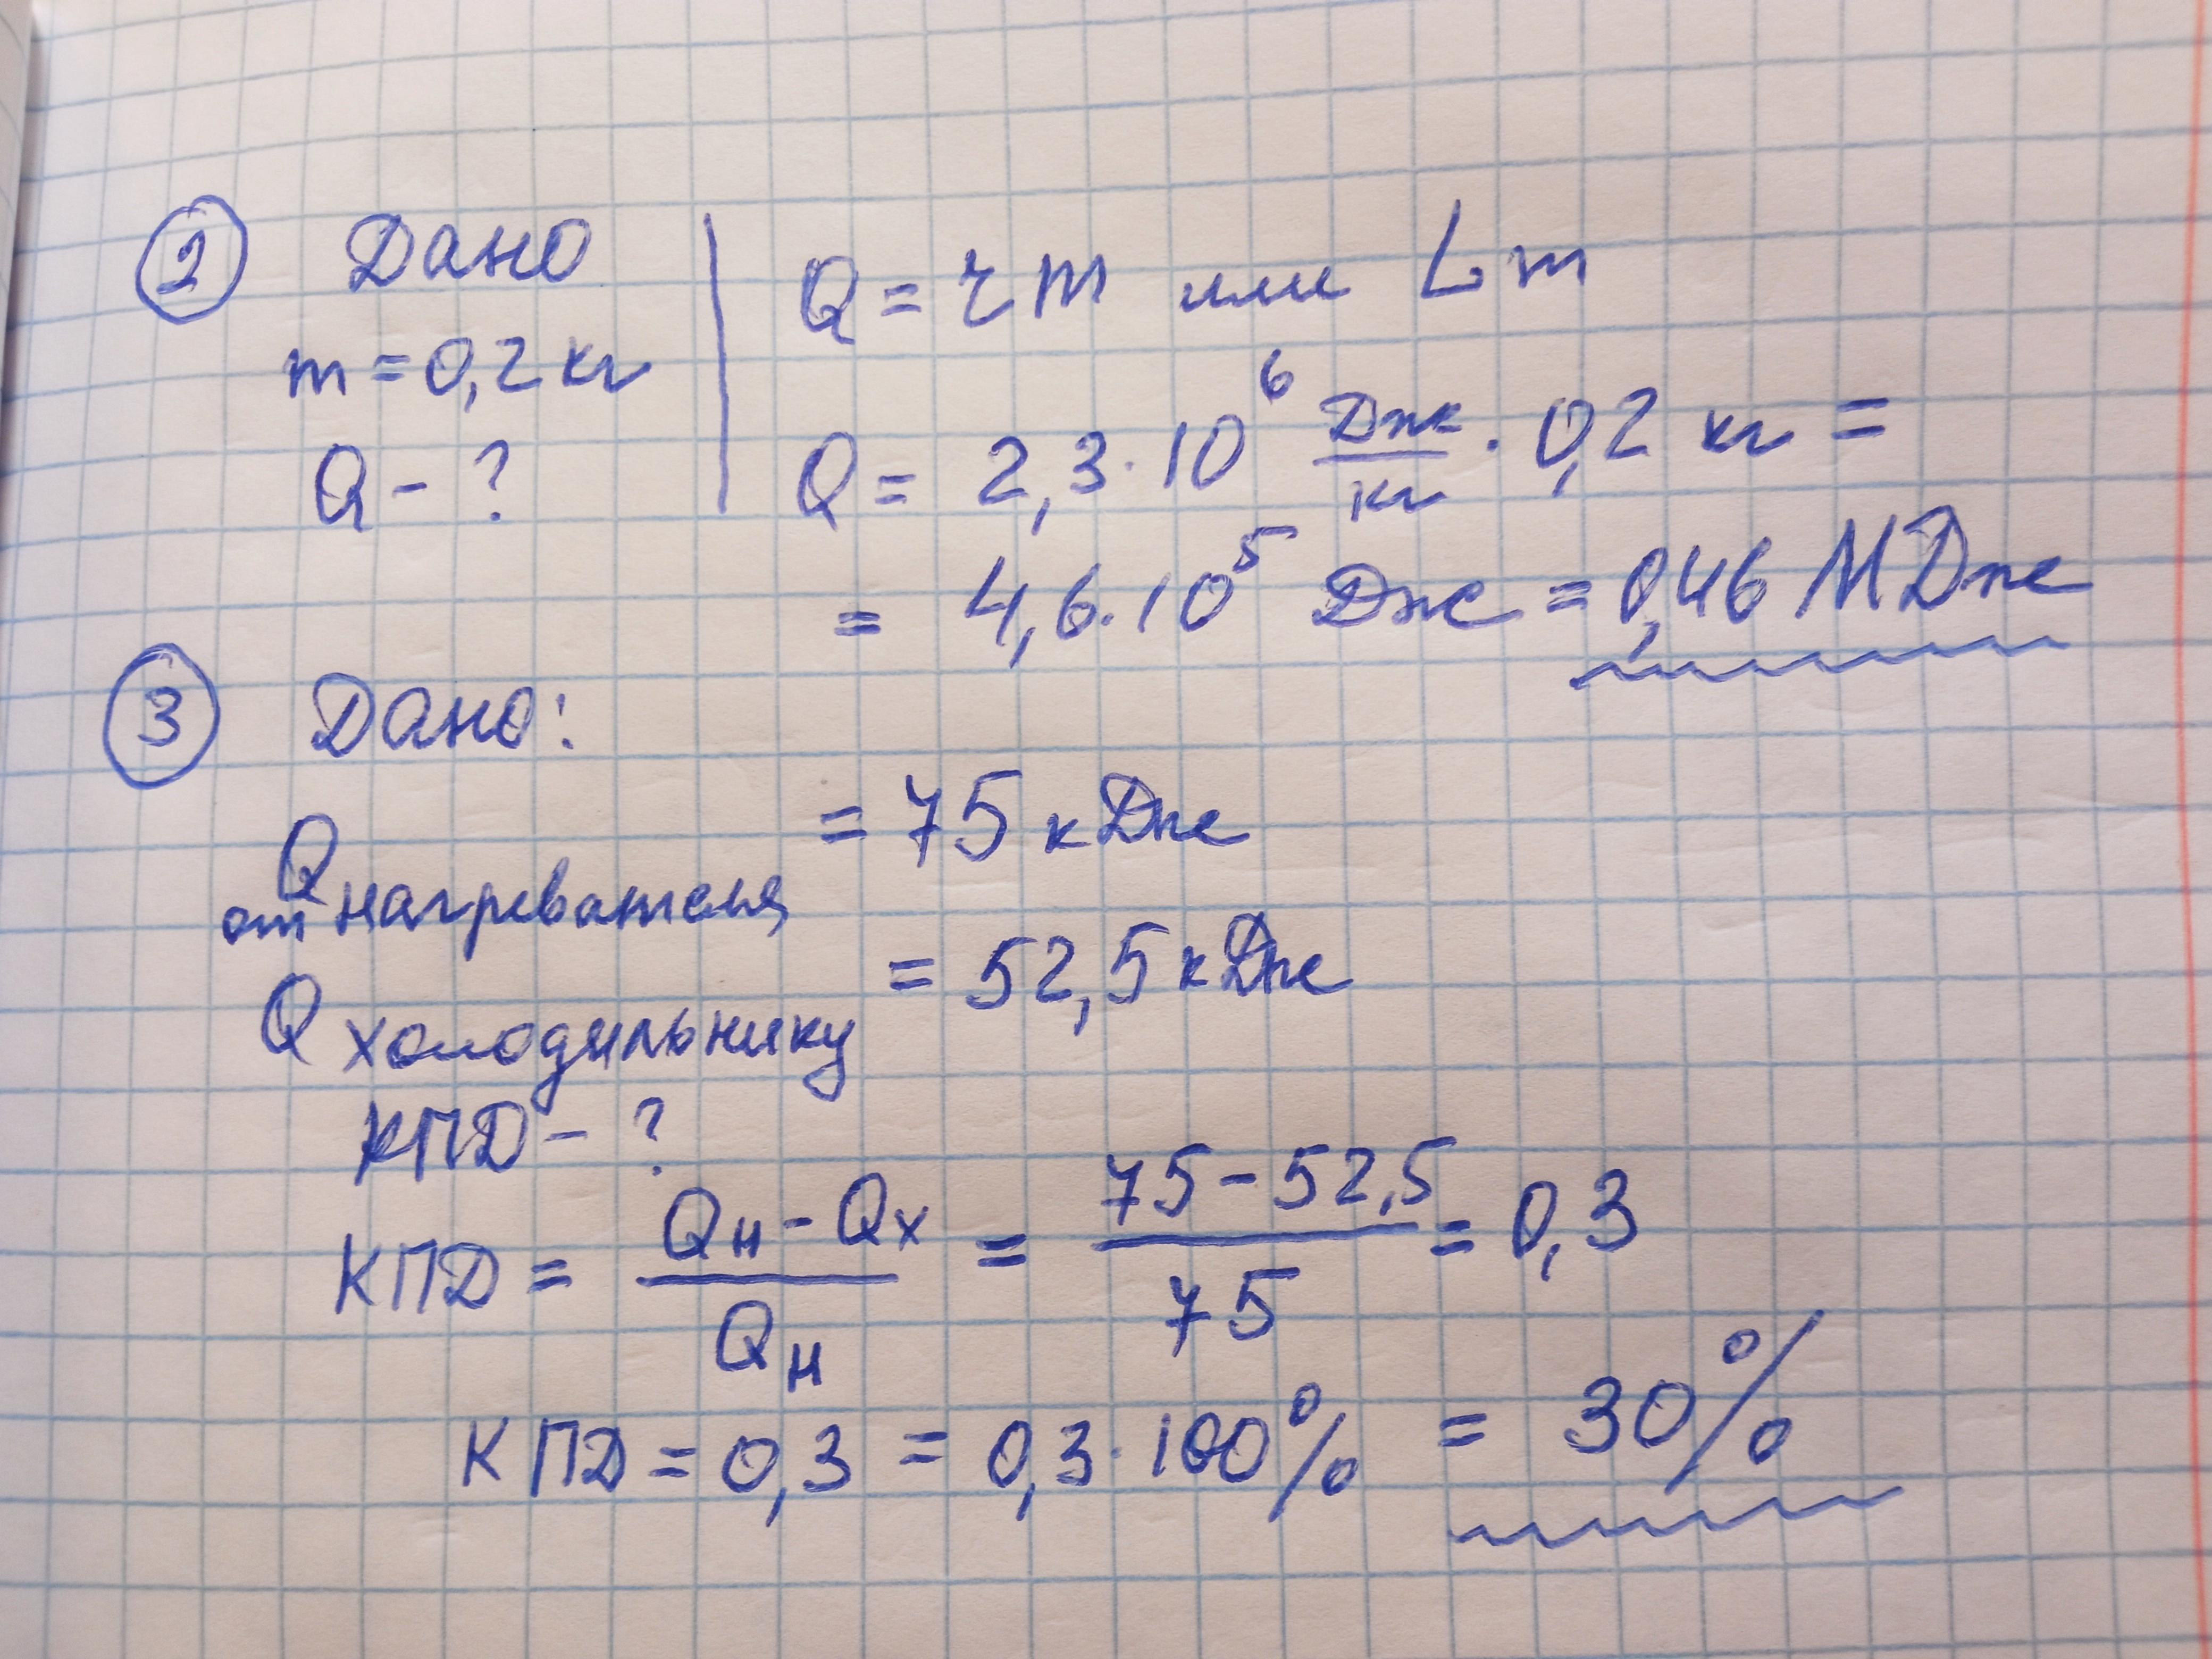 ② Дано
m = 0,2 кг
Q - ?
Q = r m или L m
Q = 2,3 · 10⁶ Дж/кг · 0,2 кг =
= 4,6 · 10⁵ Дж = 0,46 МДж
③ Дано:
Q от нагревателя = 75 кДж
Q холодильнику = 52,5 кДж
КПД - ?
КПД = (Qн - Qх)/Qн = (75 - 52,5)/75 = 0,3
КПД = 0,3 = 0,3 · 100% = 30%